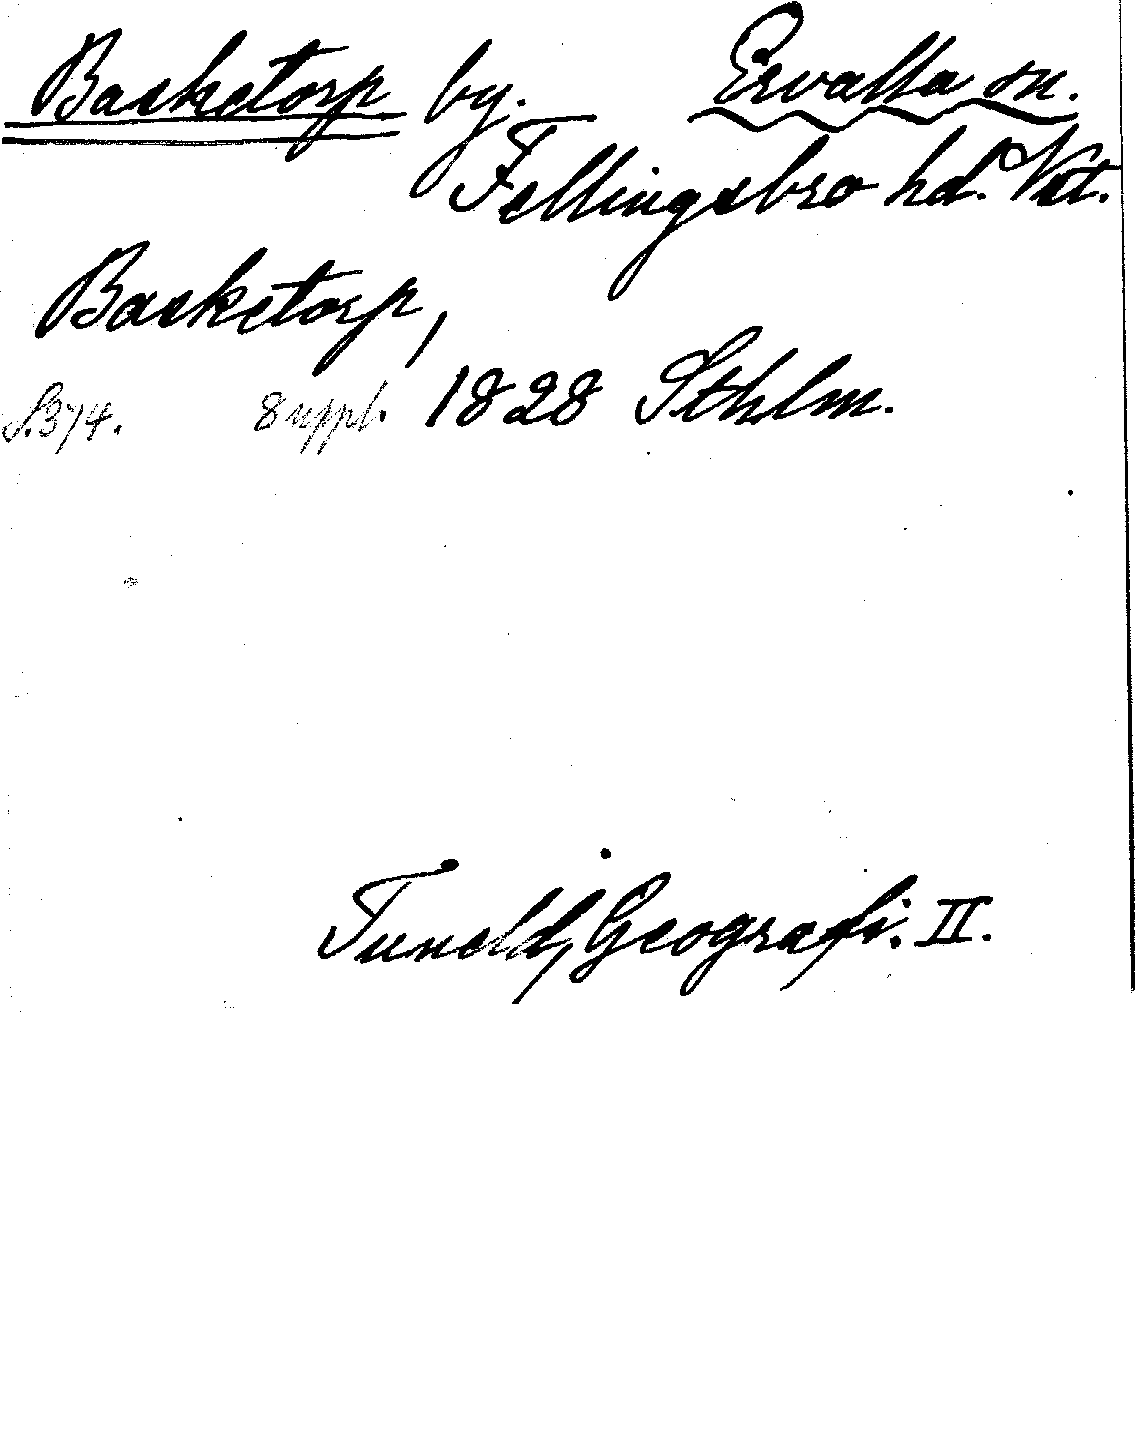 Basketorp by. Ervalla sn.
Fellingsbro hd. Vst.
Basketorp,
S.374. Suppl. 1828 Sthlm.
Tuneld, Geografi. II.